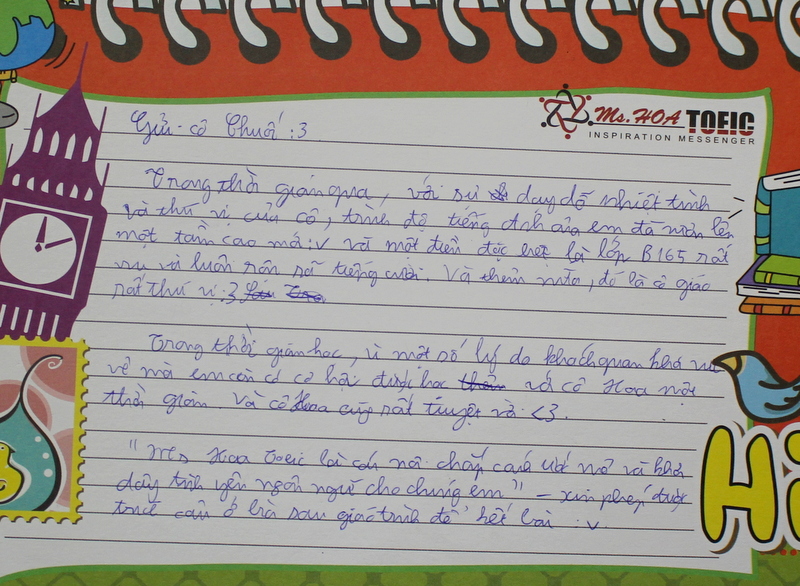 Ms. HOA TOEIC
INSPIRATION MESSENGER
Gửi cô Chuối :3
Trong thời gian qua, với sự dạy dỗ nhiệt tình
và thú vị của cô, trình độ tiếng Anh của em đã nâng lên
một tầm cao mới :v và một điều đặc biệt là lớp B165 rất
vui và luôn rộn rã tiếng cười. Và thêm nữa, đó là cô giáo
rất thú vị :3
Trong thời gian học, vì một số lý do khách quan khá
vẻ mà em còn có cơ hội được học với cô Hoa một
thời gian. Và cô Hoa cũng rất tuyệt vời <3.
"Ms Hoa Toeic là cái nôi chắp cánh ước mơ và khơi
dậy tình yêu ngôn ngữ cho chúng em" – xin phép được
trích câu ở bìa sau giáo trình để hết bài :v
Hi